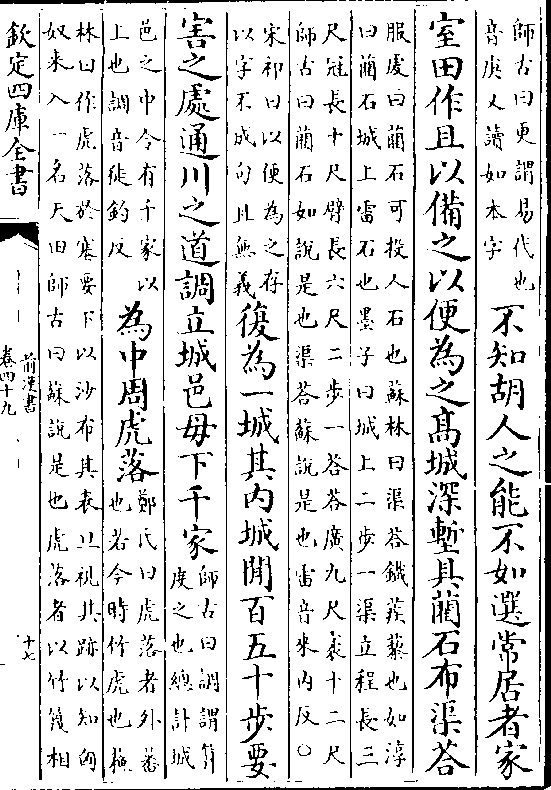 師古曰更謂易代也
音庚人讀如本字
不知胡人之能不如選常居者家
室田作且以備之以便為之髙城深壍具藺石布渠荅
服虔曰藺石可投人石也蘇林曰渠荅鐵蒺藜也如淳
曰藺石城上雷石也墨子曰城上二步一渠立程長三
尺冠長十尺臂長六尺二步一荅荅廣九尺袤十二尺
師古曰藺石如說是也渠荅蘇說是也雷音來内反○
宋祁曰以便為之存
以字不成句且無義
復為一城其内城閒百五十步要
害之處通川之道調立城邑毋下千家
師古曰調謂算
度之也總計城
邑之中令有千家以
上也調音徒釣反
為中周虎落
鄭氏曰虎落者外蕃
也若今時竹虎也蘇
林曰作虎落於塞要下以沙布其表旦視其跡以知匈
奴来入一名天田師古曰蘇說是也虎落者以竹篾相
欽定四庫全書
前漢書
卷四十九
十七